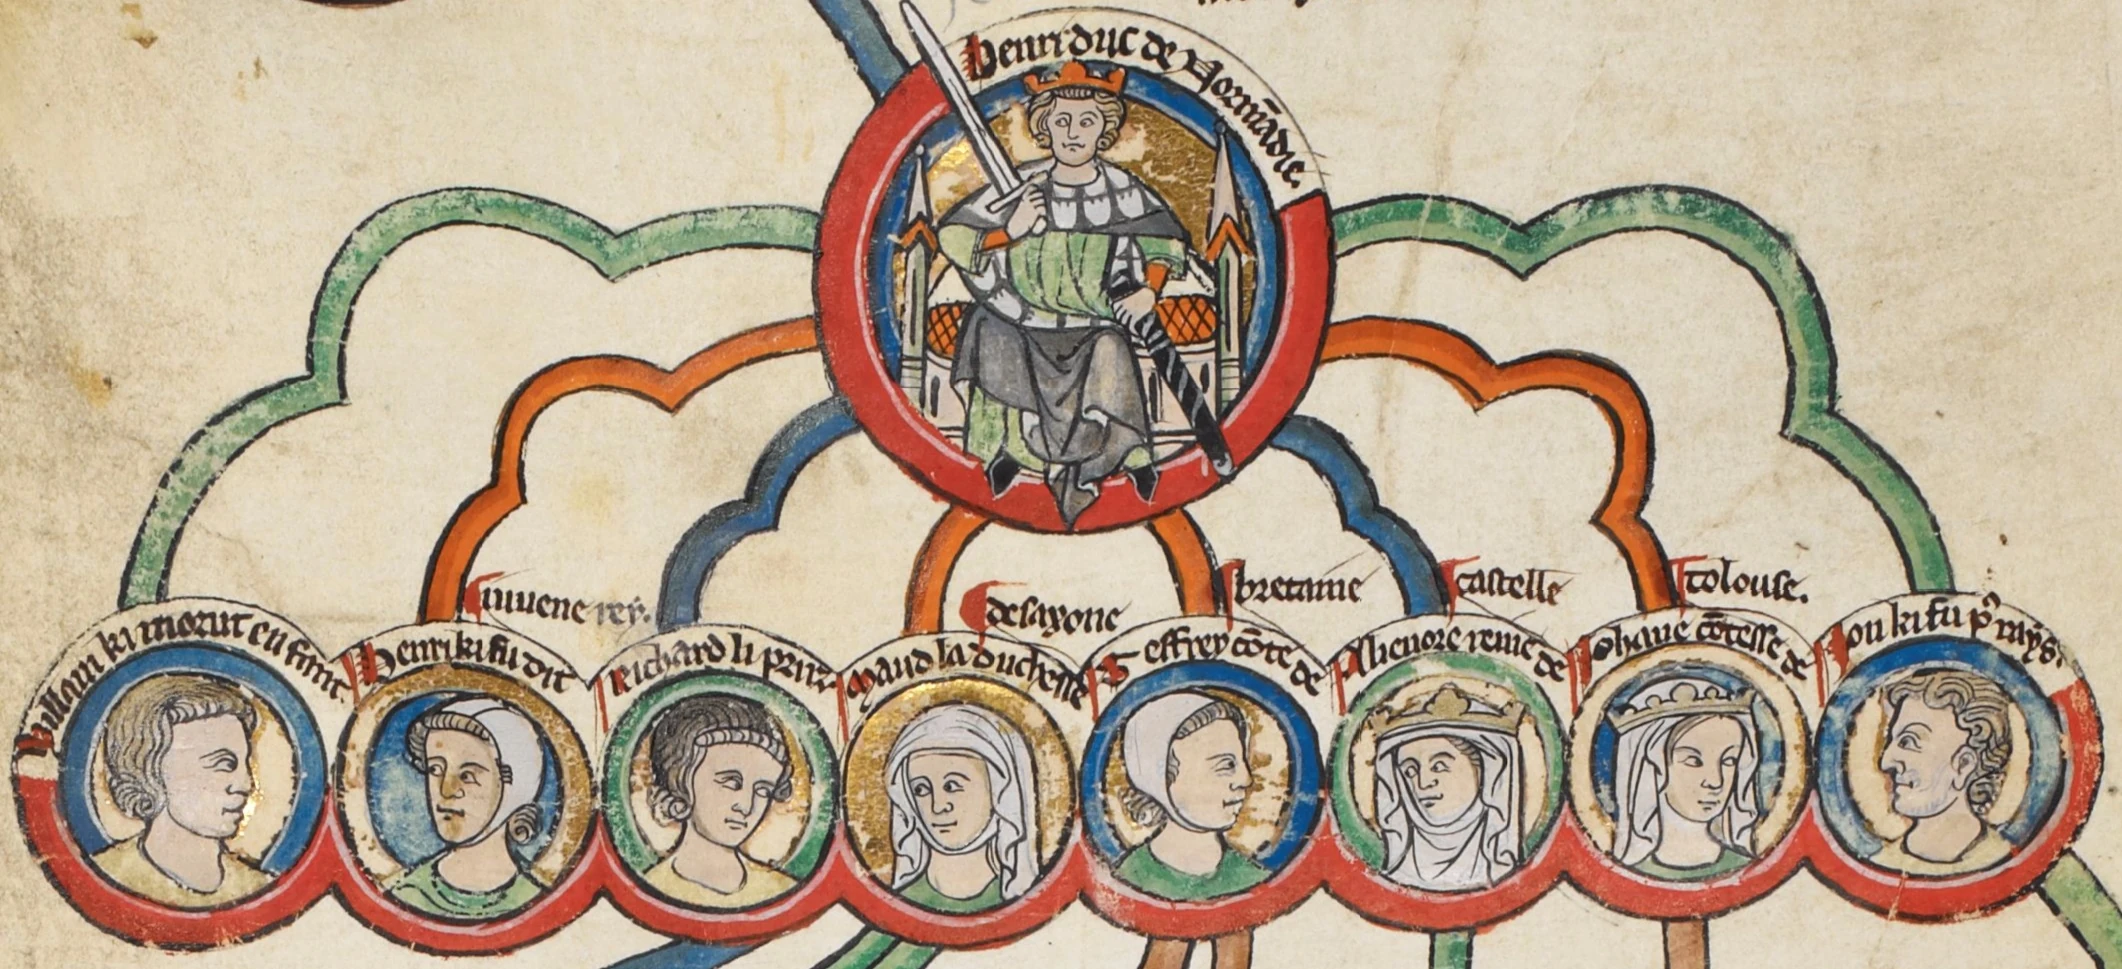 Henri duc de Normādie.
Willam ki morut en fant
Henri ki fu dit
iuuene rey.
Richard li prız
Maud la duchesse
de saxone
Geffrey cōte de
bretaine
Alienore reine de
castelle
Iohane cōtesse de
tolouse.
Ion ki fu pꝰ rays.